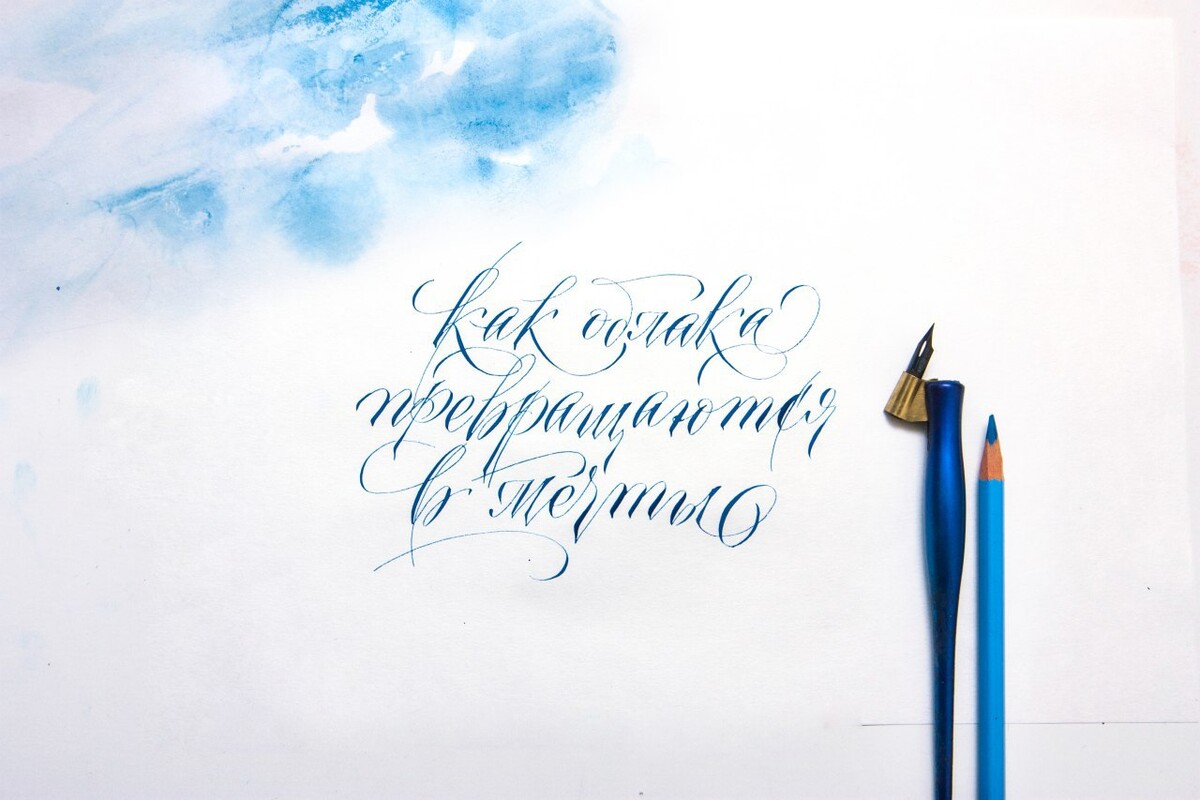 как облака
превращаются
в мечты